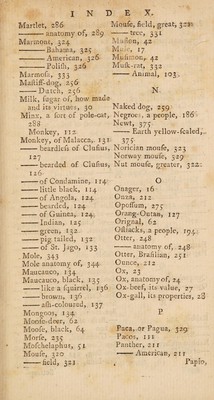 INDEX.
Martlet, 286
—— anatomy of, 289
Marmous, 324
—— Bahama, 325
—— American, 326
—— Polish, 326
Marmosa, 333
Mastiff-dog, 256
—— Dutch, 256
Milk, sugar of, how made
and its virtues, 30
Minx, a sort of pole-cat,
288
Monkey, 112
Monkey, of Malacca, 131
—— beardless of Clusius,
127
—— bearded of Clusius,
126
—— of Condamine, 114
—— little black, 114
—— of Angola, 124
—— bearded, 124
—— of Guinea, 124
—— Indian, 125
—— green, 132
—— pig tailed, 132
—— of St. Jago, 133
Mole, 343
Mole anatomy of, 344
Maucauco, 134
Maucauco, black, 135
—— like a squirrel, 136
—— brown, 136
—— ash-coloured, 137
Mongoos, 134
Moose-deer, 62
Moose, black, 64
Morse, 235
Moschelaphus, 51
Mouse, 320
—— field, 321
Mouse, field, great, 322
—— tree, 331
Musmon, 42
Musk, 17
Musimon, 42
Musk-rat, 332
—— Animal, 103
N
Naked dog, 259
Negroes, a people, 186
Newt, 375
—— Earth yellow-scaled,
375
Norician mouse, 323
Norway mouse, 329
Nut mouse, greater, 322
O
Onager, 16
Onza, 212
Opossum, 275
Orang-Outan, 127
Orignal, 62
Ostiacks, a people, 194
Otter, 248
—— anatomy of, 248
Otter, Brasilian, 251
Ounce, 212
Ox, 23
Ox, anatomy of, 24
Ox-beef, its value, 27
Ox-gall, its properties, 28
P
Paca, or Pagua, 329
Pacos, 111
Panther, 211
—— American, 211
Papio,